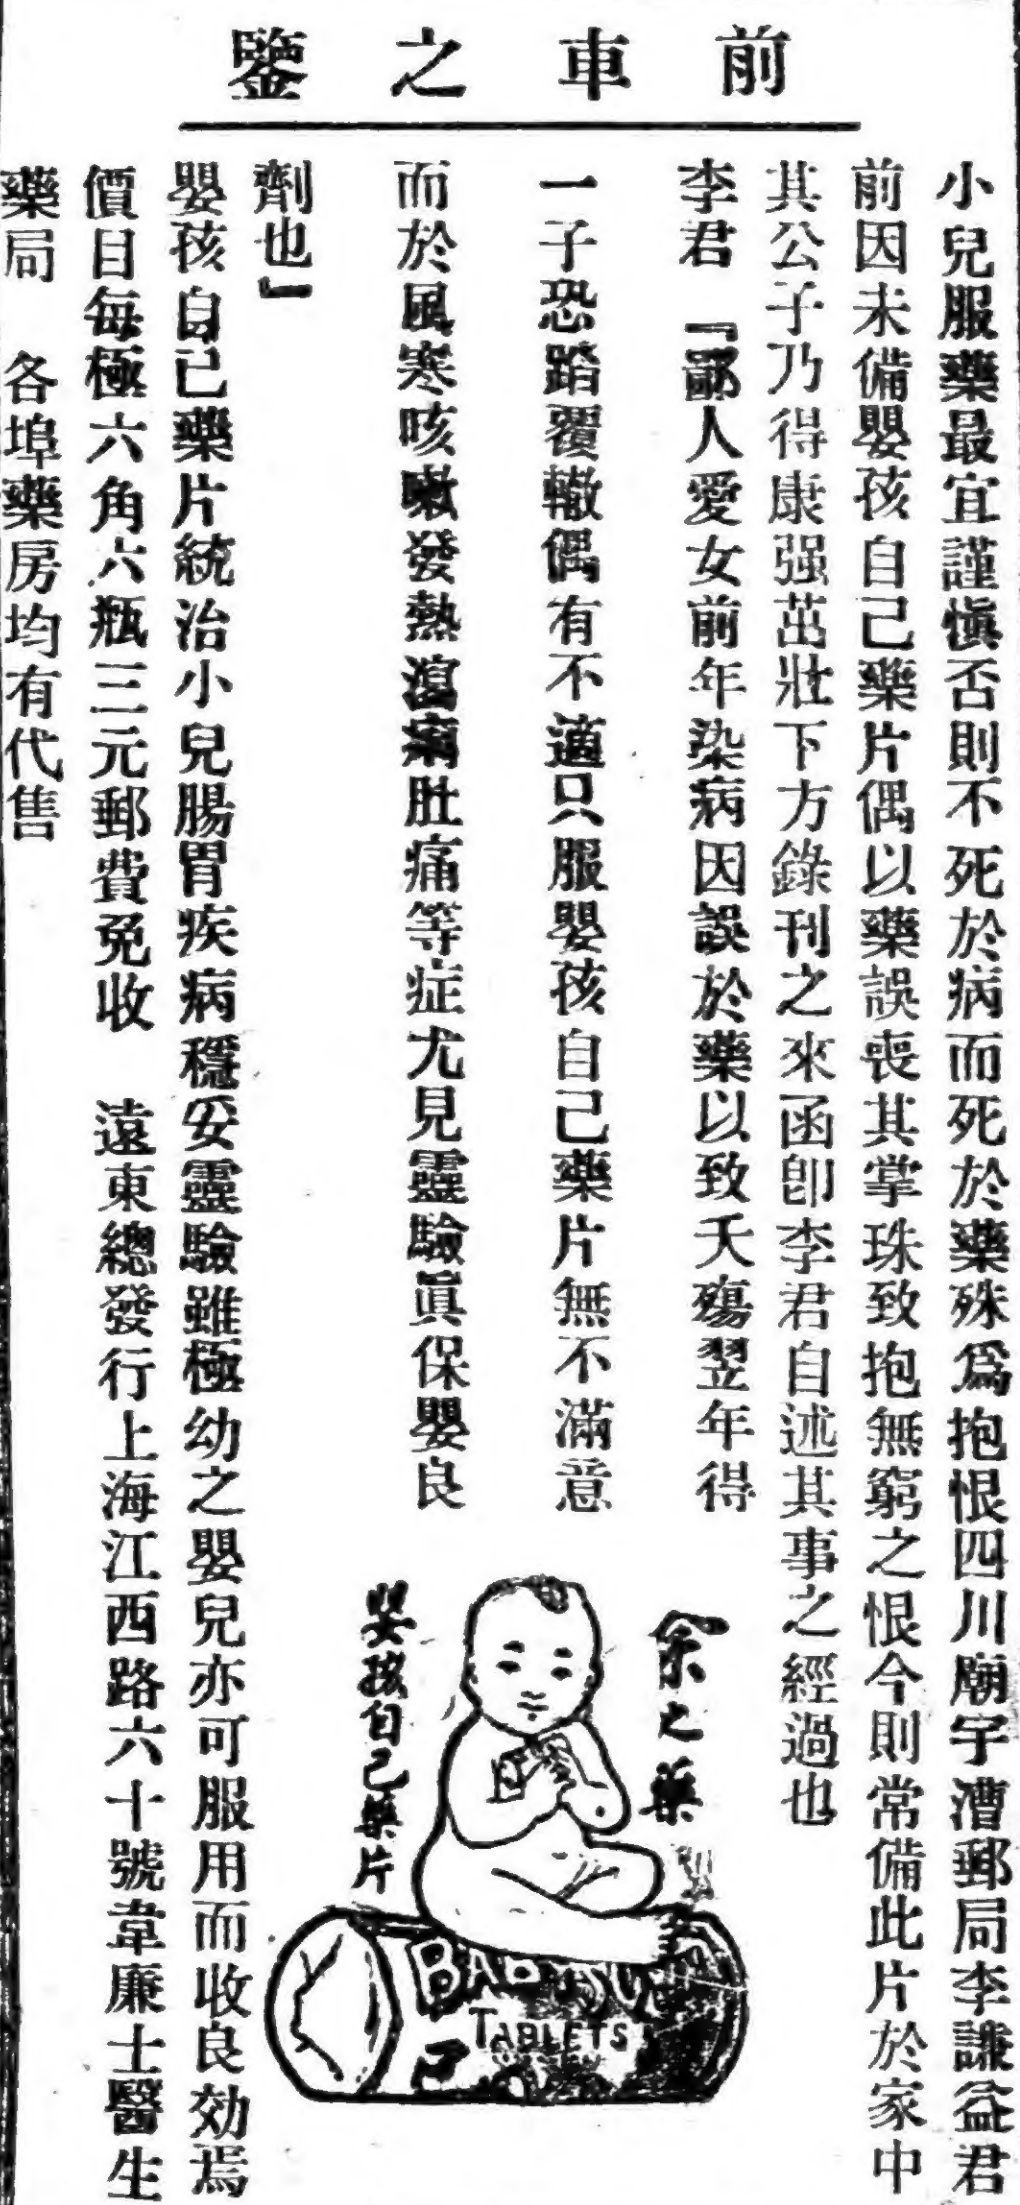 前車之鑒
小兒服藥最宜謹愼否則不死於病而死於藥殊爲抱恨四川廟宇漕郵局李謙益君
前因未備嬰孩自己藥片偶以藥誤喪其掌珠致抱無窮之恨今則常備此片於家中
其公子乃得康强茁壯下方錄刊之來函卽李君自述其事之經過也
李君『鄙人愛女前年染病因誤於藥以致夭殤翌年得
一子恐蹈覆轍偶有不適只服嬰孩自己藥片無不滿意
而於風寒咳嗽發熱瀉痢肚痛等症尤見靈驗眞保嬰良
劑也』
嬰孩自己藥片統治小兒腸胃疾病穩妥靈驗雖極幼之嬰兒亦可服用而收良効焉
價目每極六角六瓶三元郵費免收　遠東總發行上海江西路六十號韋廉士醫生
藥局　各埠藥房均有代售
余之藥
嬰孩自己藥片
BABY'S OWN
TABLETS
己